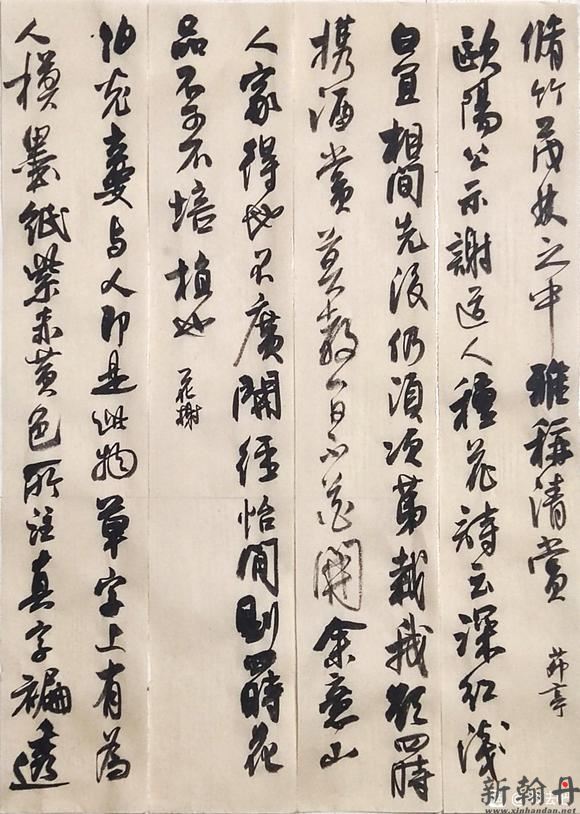 脩竹茂林之中雅稱清賞 茆亭
歐陽公示謝道人種花詩云深紅淺
白宜相間先後仍須次第栽我欲四時
携酒賞莫教一日不花開余意山
人家得地不廣開徑怡閒則四時花
品不可不培植也 花榭
伯充臺与人即是此物草字上有為
人模墨紙紫赤黄色所注真字褊透
新翰丹
www.xinhandan.net